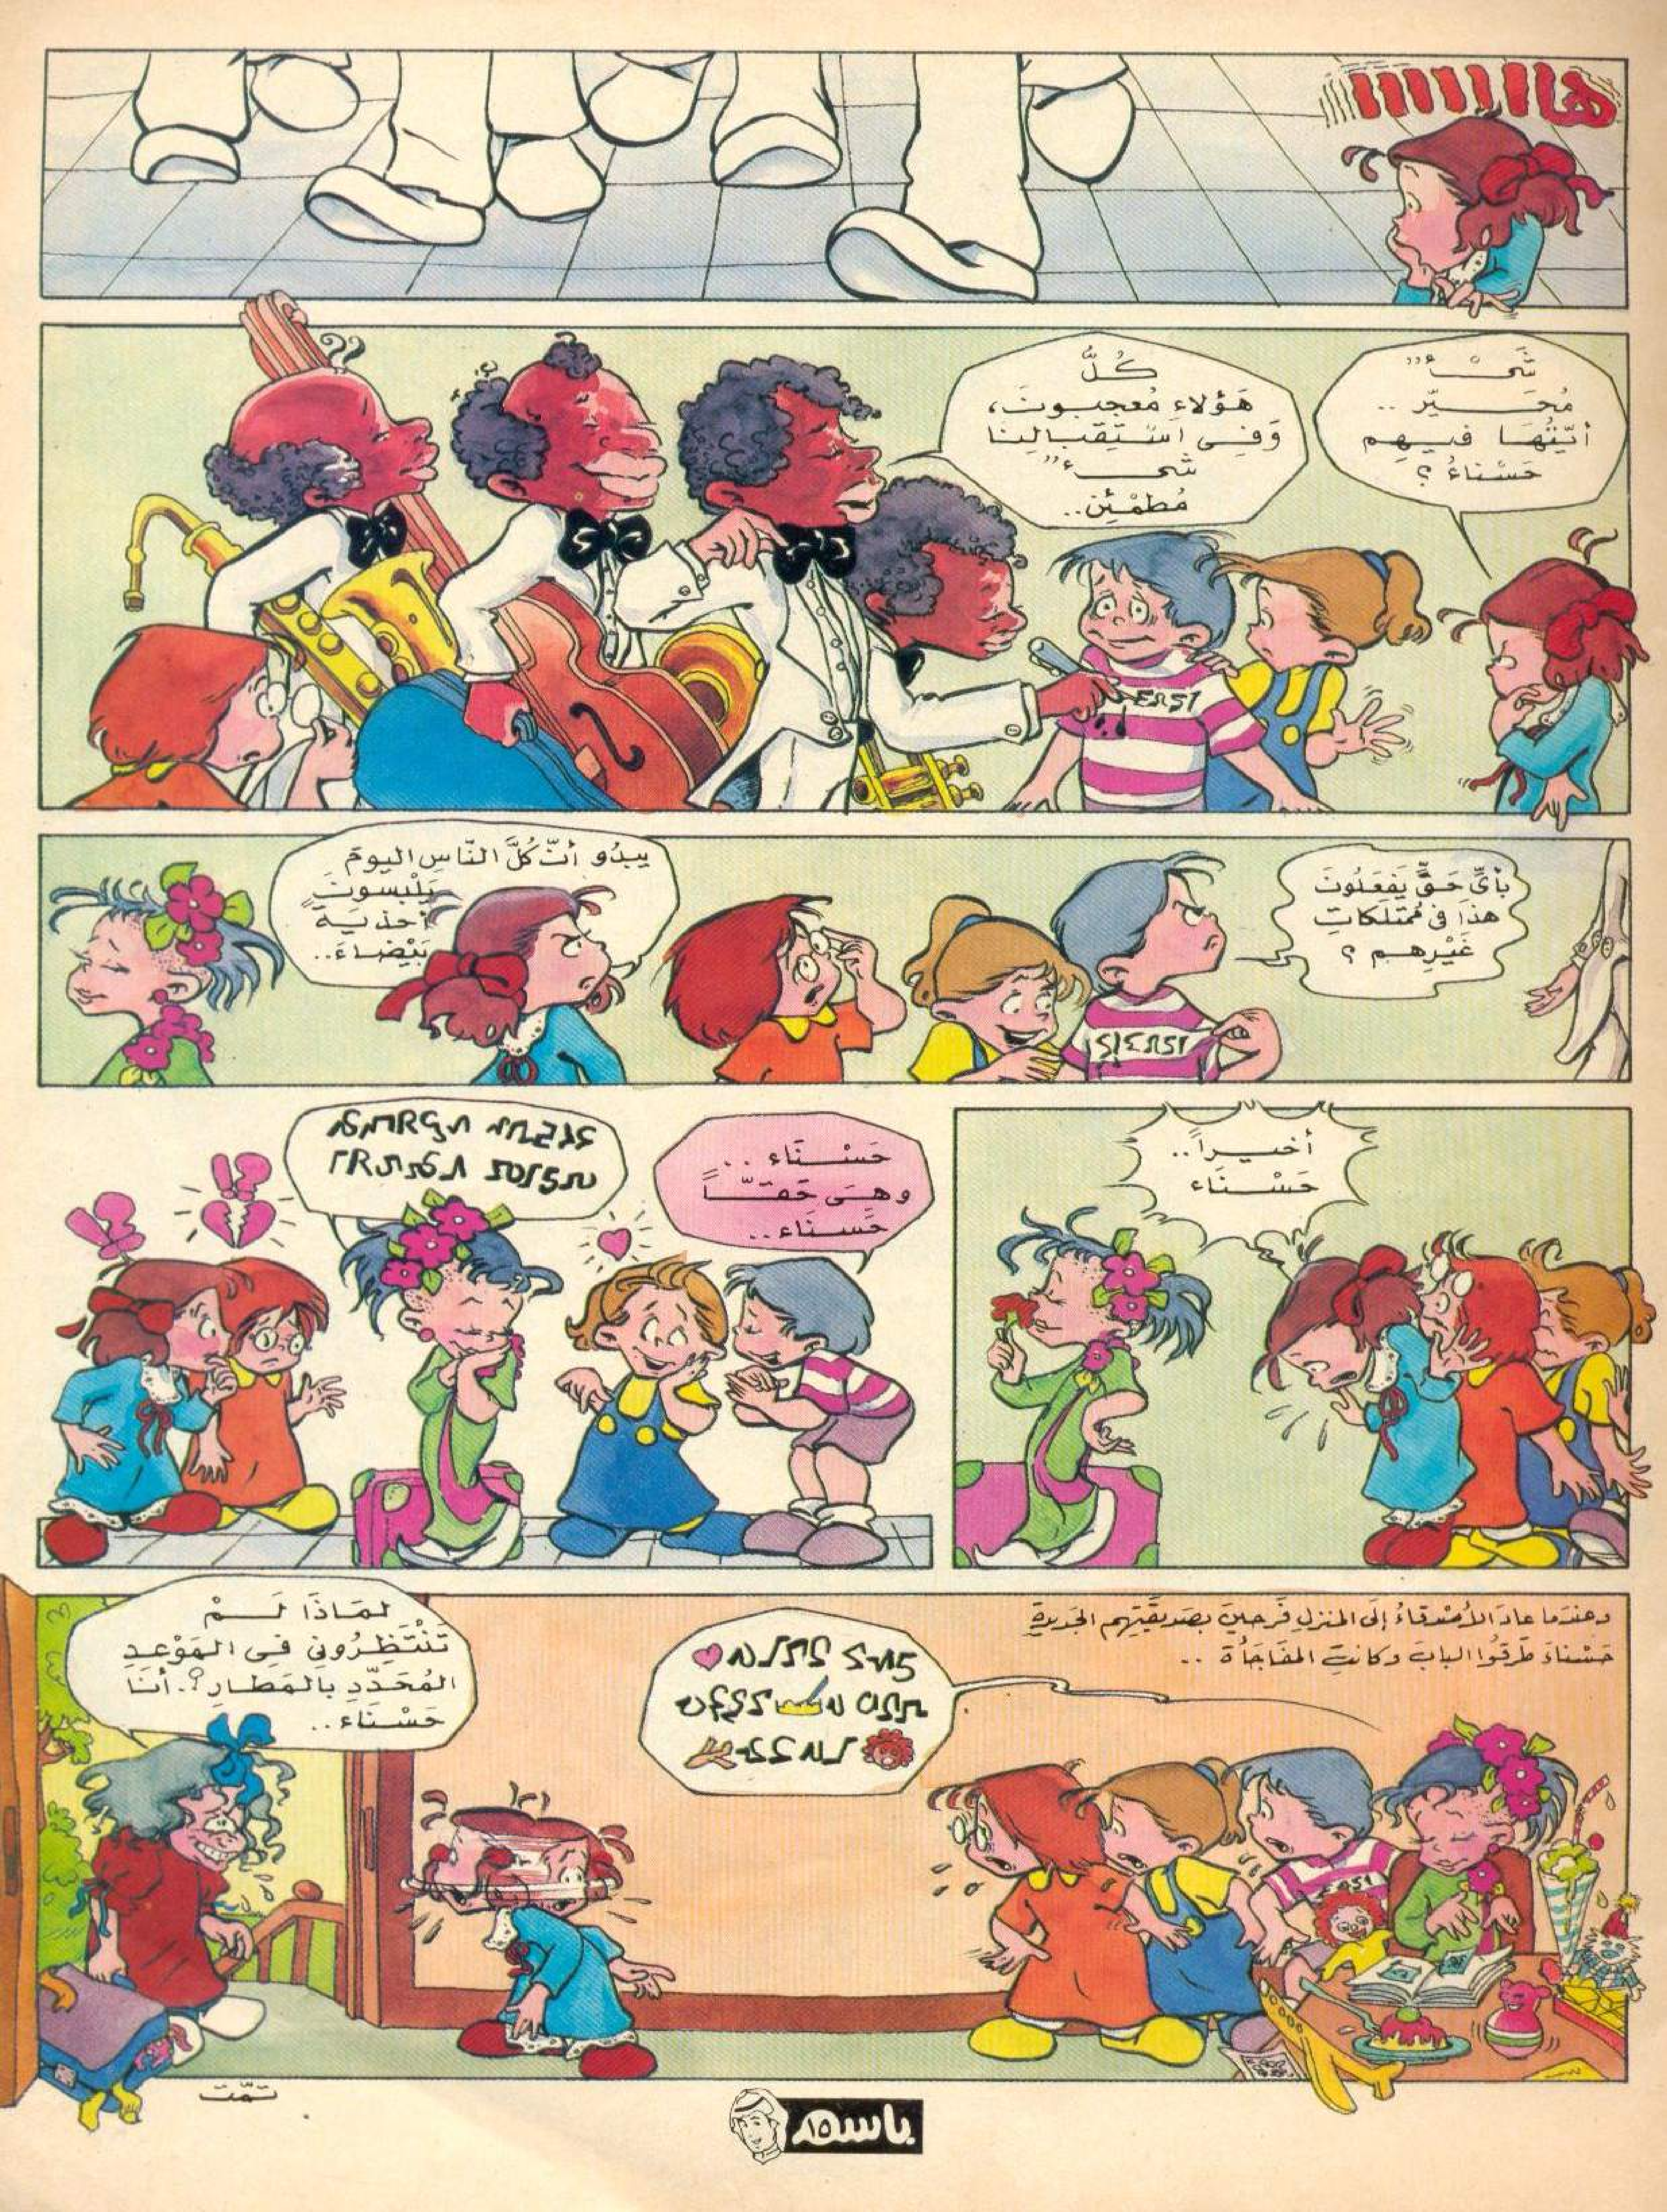 هااااااااا
شَيْءٌ
مُحَيِّر ..
أيّتُهَا فيهِم
حَسْناءُ ؟
كُلُّ
هَؤلاءِ مُعجبونَ،
وَفي اسْتِقبالِنا
شيءٌ
مُطمْئِن..
بأيِّ حَقٍّ يَفعَلُونَ
هذَا في مُمتَلكاتِ
غَيْرِهم ؟
يبدُو أنّ كُلَّ النّاسِ اليومَ
يَلْبسونَ
أحذيةً
بَيْضاءَ..
أخيراً..
حَسْنَاء
حَسْنَاء ..
وهيَ حَقّاً
حَسناء..
وعندَما عادَ الأصْدقاءُ إلَى المنزلِ فَرحينَ بصَديقَتِهم الجَديدةِ
حَسْناءَ طَرقُوا البابَ وكانتِ المفَاجَأة ..
لمَاذَا لَمْ
تَنْتَظِرُوني في المَوْعدِ
المُحَدّدِ بالمَطارِ؟. أنَا
حَسْنَاء..
تمّت
باسم
١٥